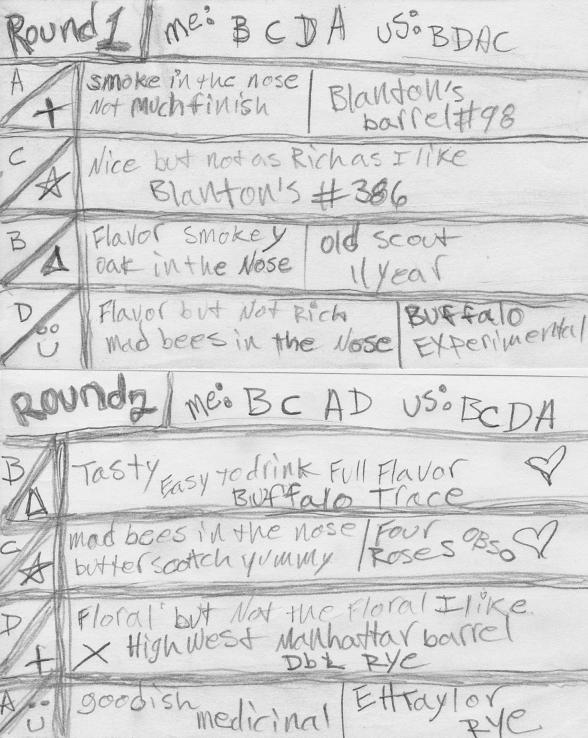 Round 1 me: B C D A us: BDAC
A smoke in the nose
Not much finish
Blanton's
barrel #98
C Nice but not as Rich as I like
Blanton's #386
B Flavor smokey
oak in the Nose
old scout
11 year
D Flavor but Not Rich
mad bees in the Nose
Buffalo
Experimental
Round 2 me: B C A D us: BCDA
B Tasty Easy to drink Full Flavor
Buffalo Trace
C mad bees in the nose
butterscotch yummy
Four
Roses OBSO
D Floral but Not the Floral I like
X High West Manhattan barrel
Dbl Rye
A goodish
medicinal
EH Taylor
Rye